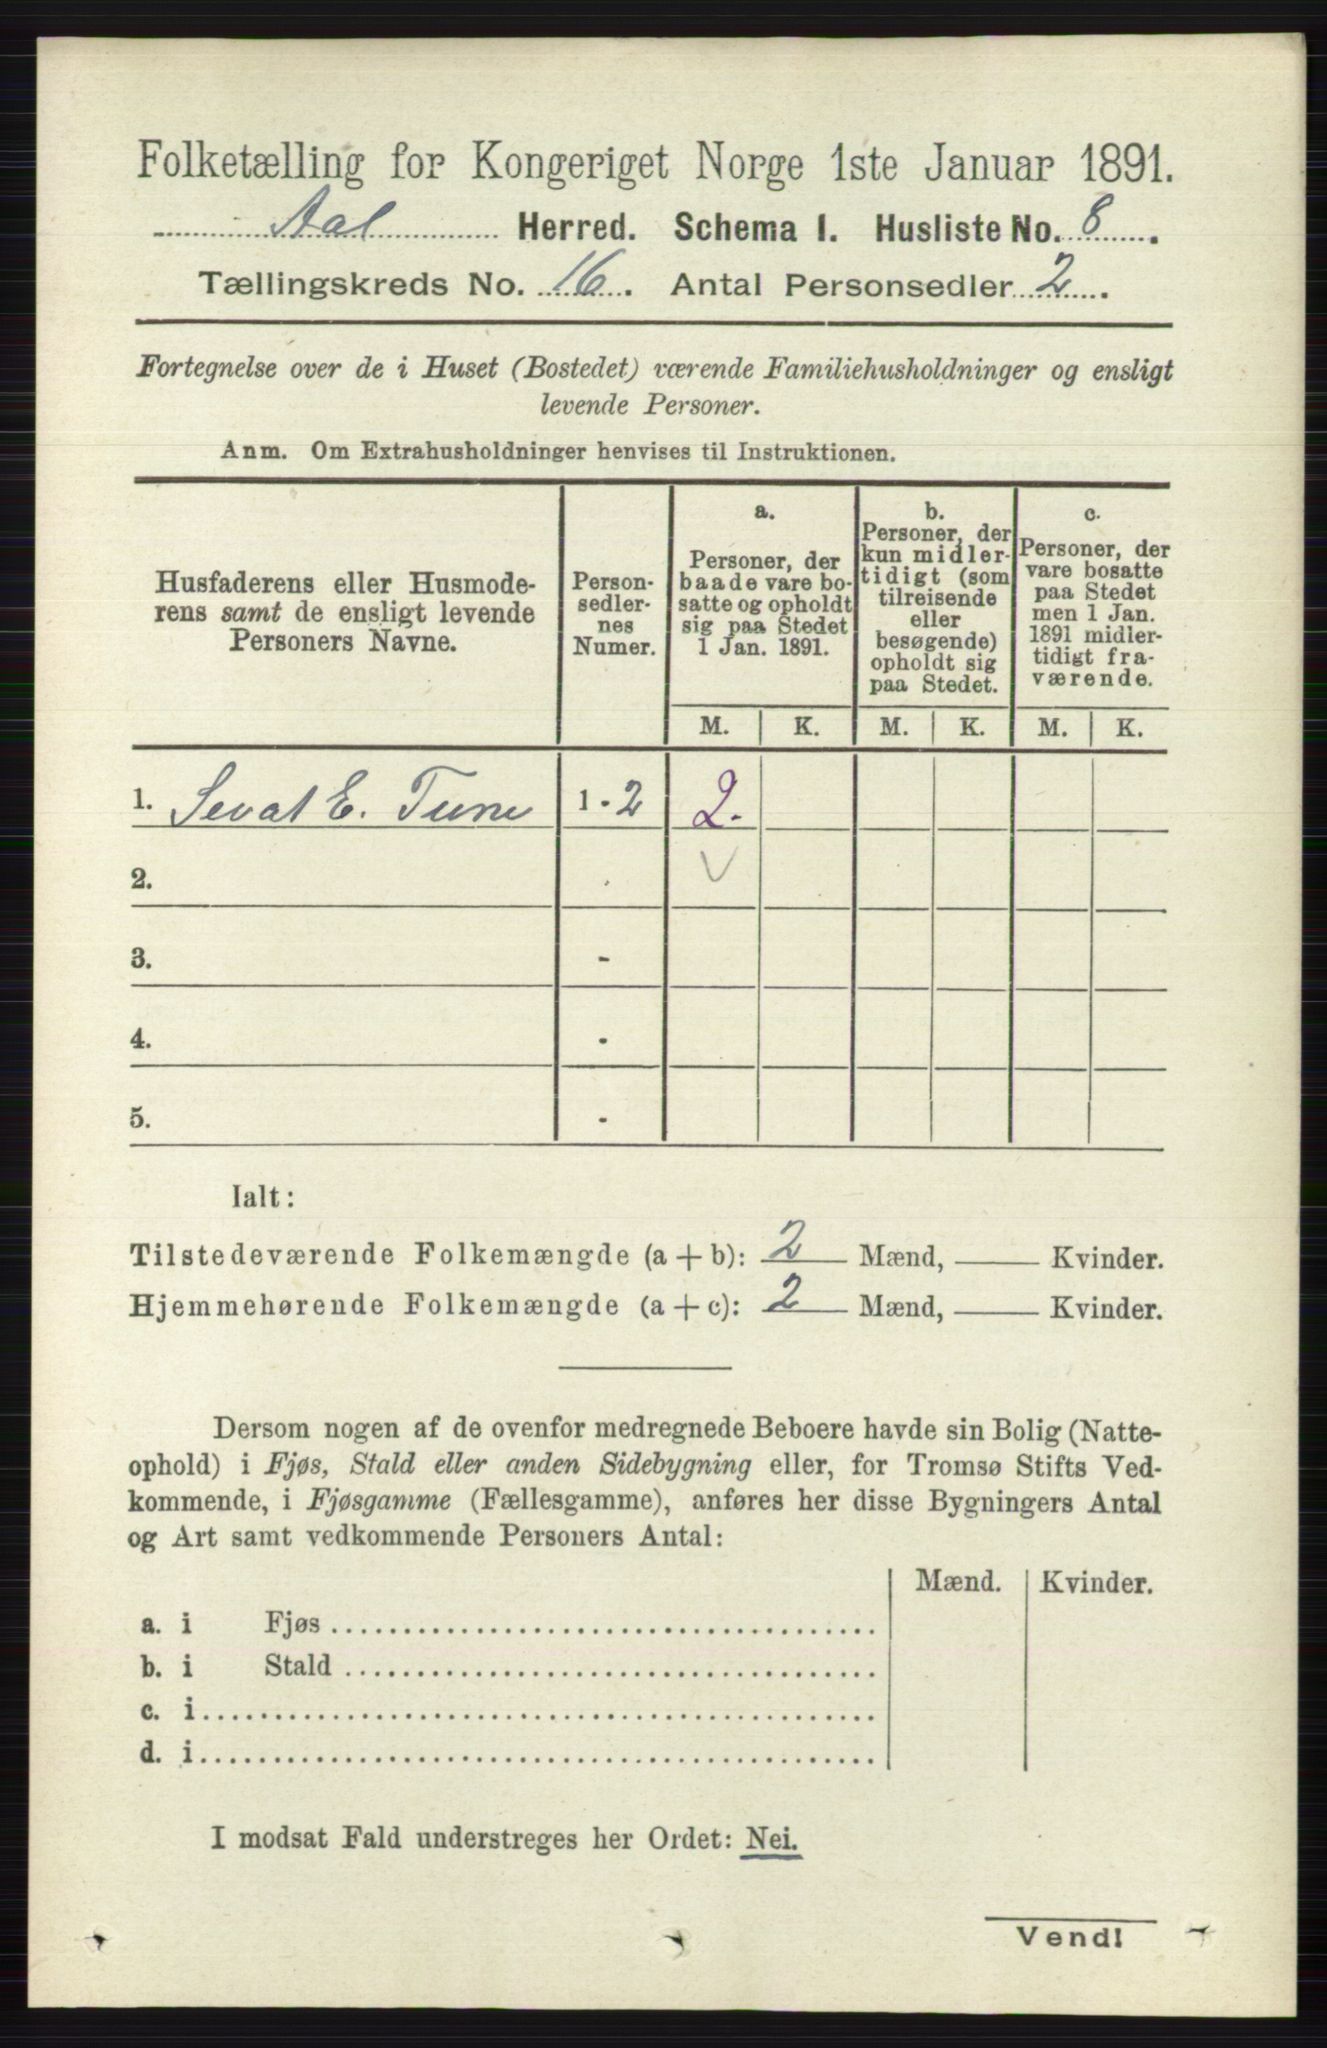 Folketælling for Kongeriget Norge 1ste Januar 1891.
Aal Herred. Schema I. Husliste No. 8.
Tællingskreds No. 16. Antal Personsedler 2.
Fortegnelse over de i Huset (Bostedet) værende Familiehusholdninger og ensligt
levende Personer.
Anm. Om Extrahusholdninger henvises til Instruktionen.
Husfaderens eller Husmode-
rens samt de ensligt levende
Personers Navne.
Person-
sedler-
nes
Numer.
a.
Personer, der
baade vare bo-
satte og opholdt
sig paa Stedet
1 Jan. 1891.
b.
Personer, der
kun midler-
tidigt (som
tilreisende
eller
besøgende)
opholdt sig
paa Stedet.
c.
Personer, der
vare bosatte
paa Stedet
men 1 Jan.
1891 midler-
tidigt fra-
værende.
M. K. M. K. M. K.
1. Sevat E. Tune 1 - 2 2.
2.
3. -
4. -
5. -
Ialt:
Tilstedeværende Folkemængde (a + b): 2 Mænd, — Kvinder.
Hjemmehørende Folkemængde (a + c): 2 Mænd, — Kvinder.
Dersom nogen af de ovenfor medregnede Beboere havde sin Bolig (Natte-
ophold) i Fjøs, Stald eller anden Sidebygning eller, for Tromsø Stifts Ved-
kommende, i Fjøsgamme (Fællesgamme), anføres her disse Bygningers Antal
og Art samt vedkommende Personers Antal:
Mænd. Kvinder.
a. i Fjøs
b. i Stald
c. i
d. i
I modsat Fald understreges her Ordet: Nei.
Vend!